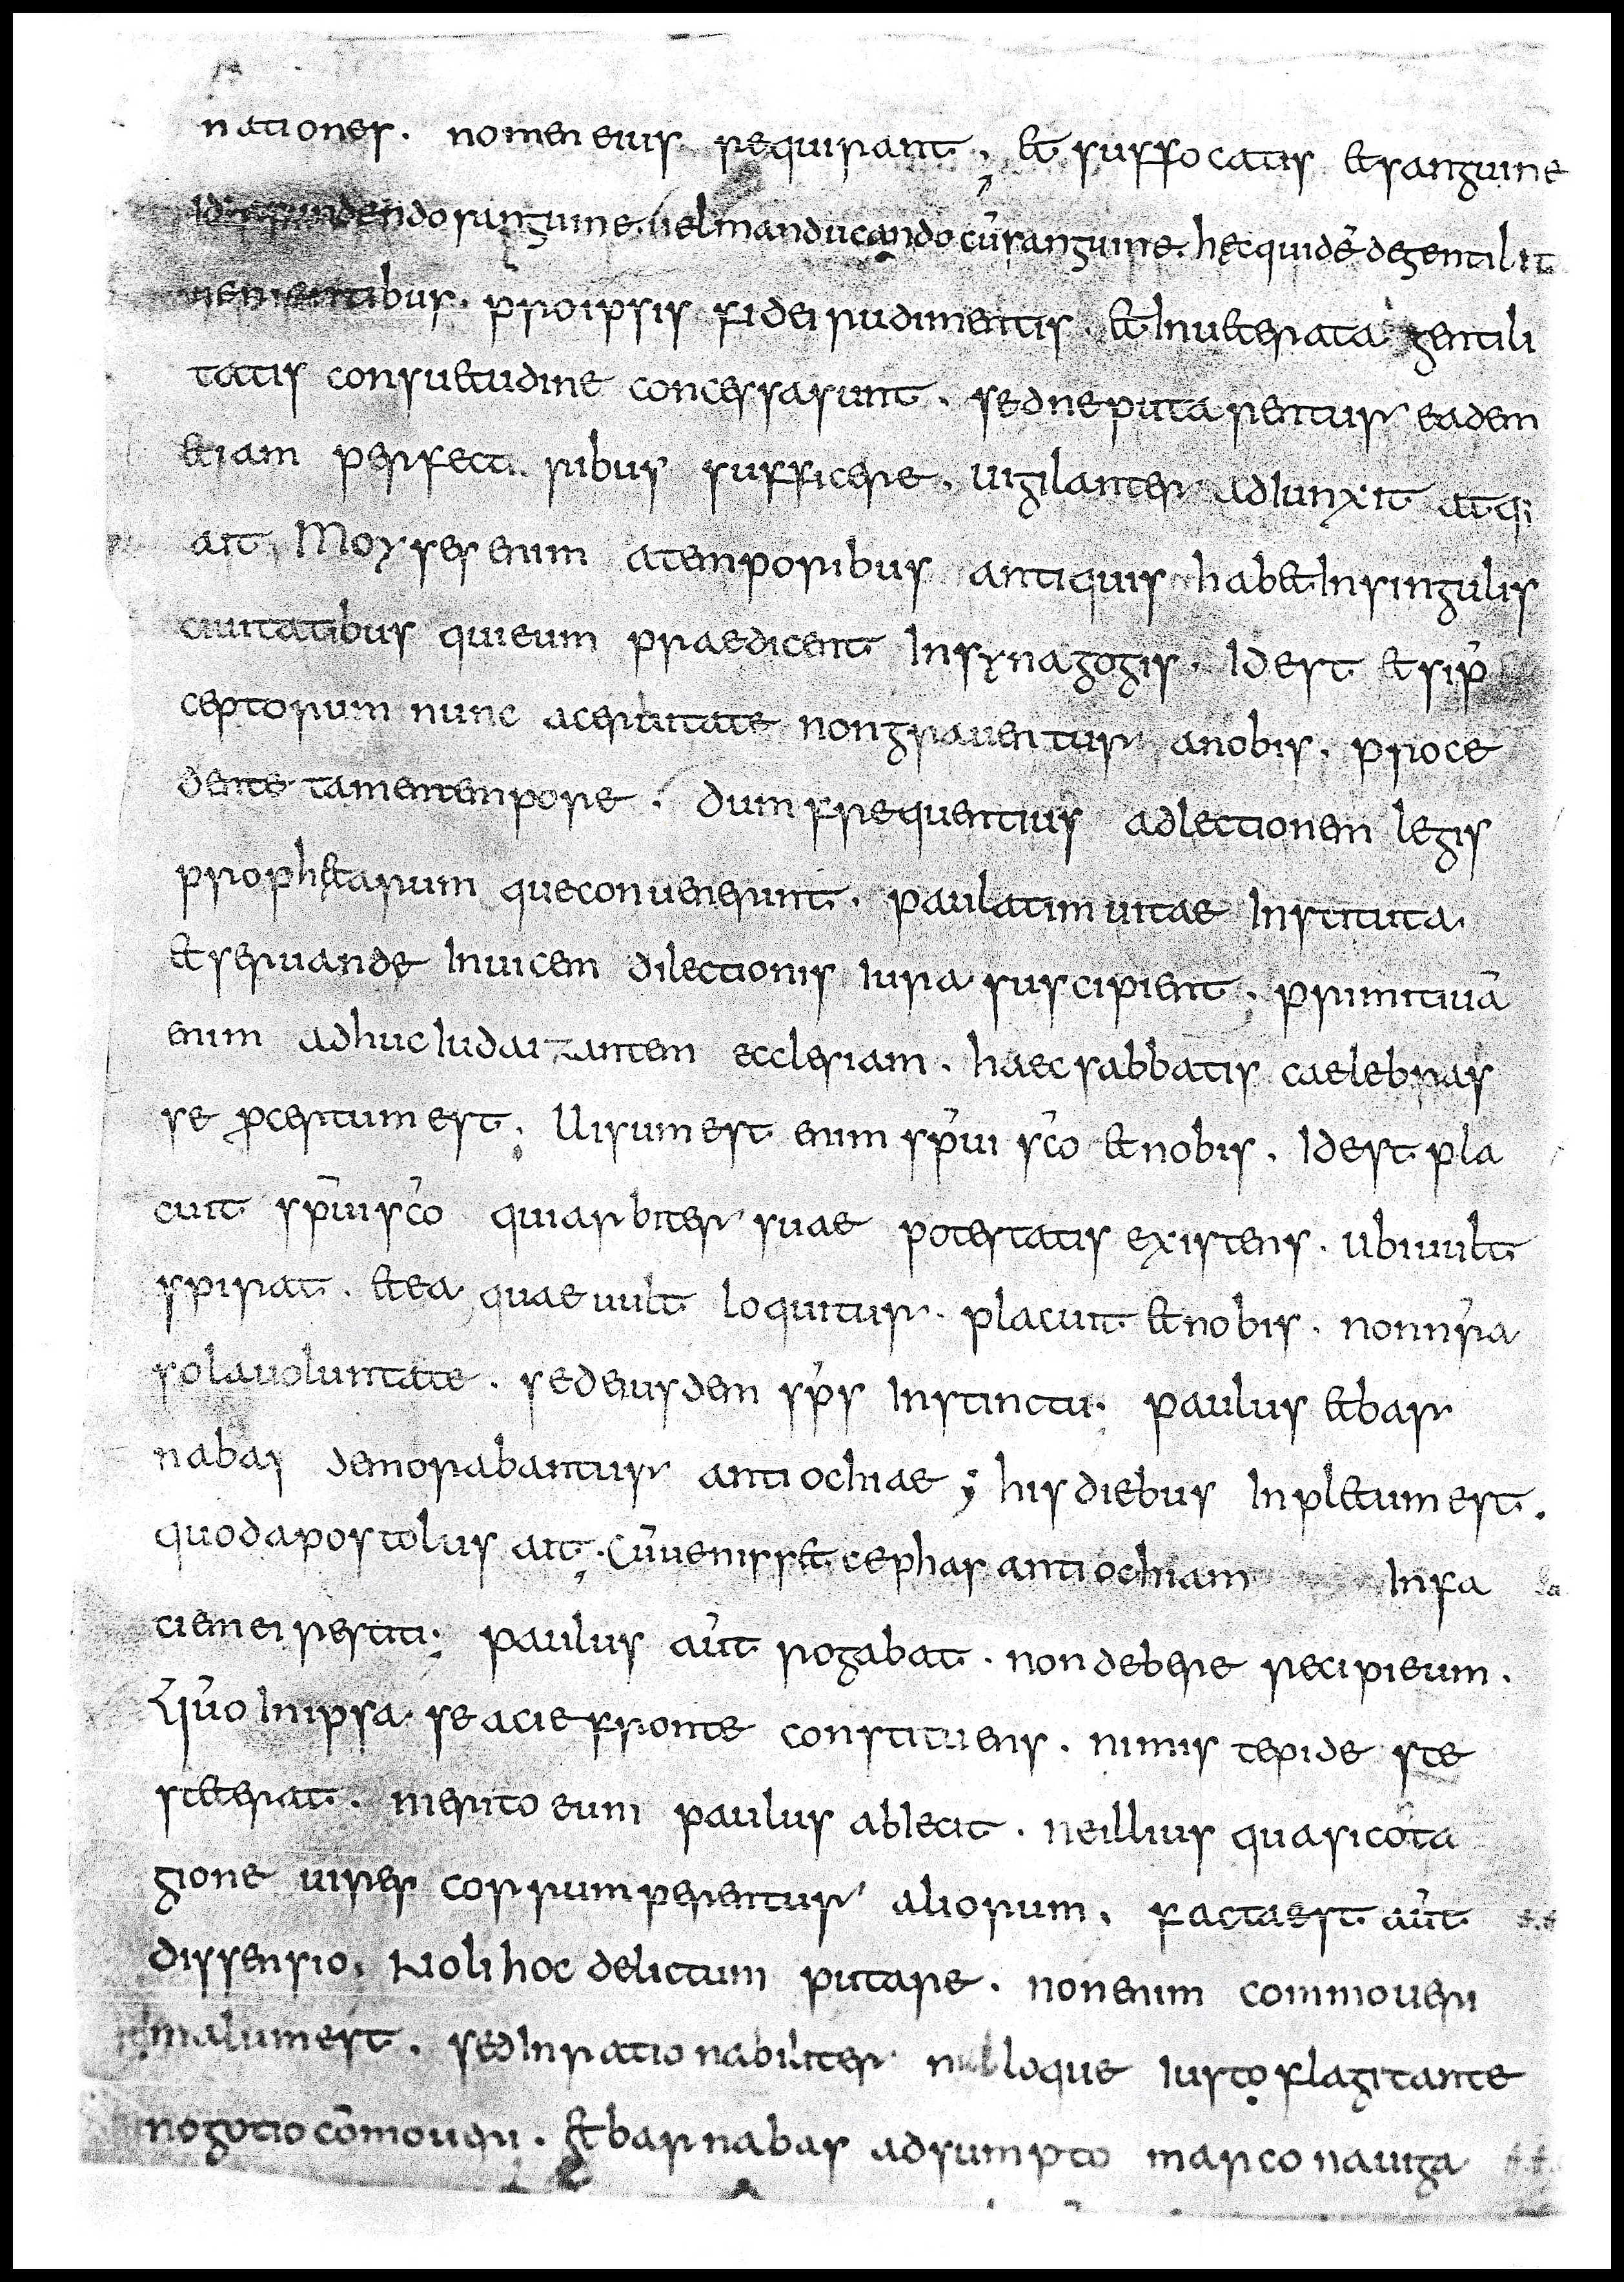 nationes. nomen eius requirant; et suffocatis et sanguine
Id: effundendo sanguine. uel manducando cū sanguine. hęc quidē de gentilit
uenientibus. pro ipsis fidei rudimentis. et Inueterata gentili
tatis consuetudine concessa sunt. sed ne putarentur eadem
etiam perfecti ribus sufficere. uigilanter adiunxit atq;
ait, Moyses enim a temporibus antiquis habet In singulis
ciuitatibus qui eum praedicent In synagogis. Id est etsi p̄
ceptorum nunc aceruitate non grauentur a nobis. proce
dente tamen tempore. dum frequentius ad lectionem legis
prophętarum que conuenerunt. paulatim uitae Instituta.
et seruandę Inuicem dilectionis Iura suscipient; primitiuā
enim adhuc Iudaizantem ecclesiam. haec sabbatis caelebras
se p̄certum est; Uisum est enim sp̄ui sc̄o et nobis. Id est pla
cuit sp̄ui sc̄o qui arbiter suae potestatis existens. ubi uult
spirat. et ea quae uult loquitur. placuit et nobis. non nr̄a
sola uoluntate. sed eiusdem sp̄s Instinctu; paulus et bar
nabas demorabantur antiochiae; his diebus Inpletum est.
quod apostolus ait; Cū uenisset cephas antiochiam In fa
ciem ei restiti; paulus aūt rogabat. non debere recipi eum.
Quō In ipsa se acie fronte constituens. nimis tepide ste
steterat. merito eum paulus abiecit. ne illius quasi cōta
gione uires corrumperentur aliorum. facta est aūt
dissensio. Noli hoc delictum putare. non enim commoueri
malum est. sed Inrationabiliter nulloque Iusto flagitante
nogotio cōmoueri. et barnabas adsumpto marco nauiga